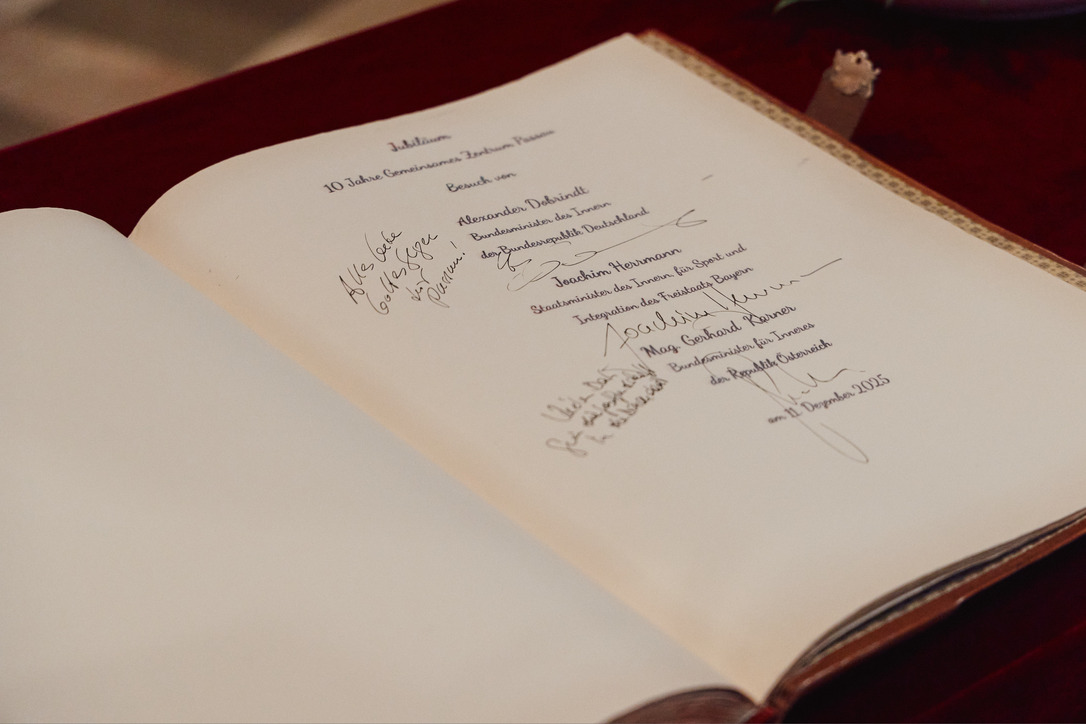 Jubiläum
10 Jahre Gemeinsames Zentrum Passau
Besuch von
Alexander Dobrindt
Bundesminister des Innern
der Bundesrepublik Deutschland
Alles Gute
Gottes Segen
für
Passau!
Joachim Herrmann
Staatsminister des Innern für Sport und
Integration des Freistaats Bayern
Joachim Herrmann
Mag. Gerhard Karner
Bundesminister für Inneres
der Republik Österreich
Vielen Dank
für die
in
am 11. Dezember 2025